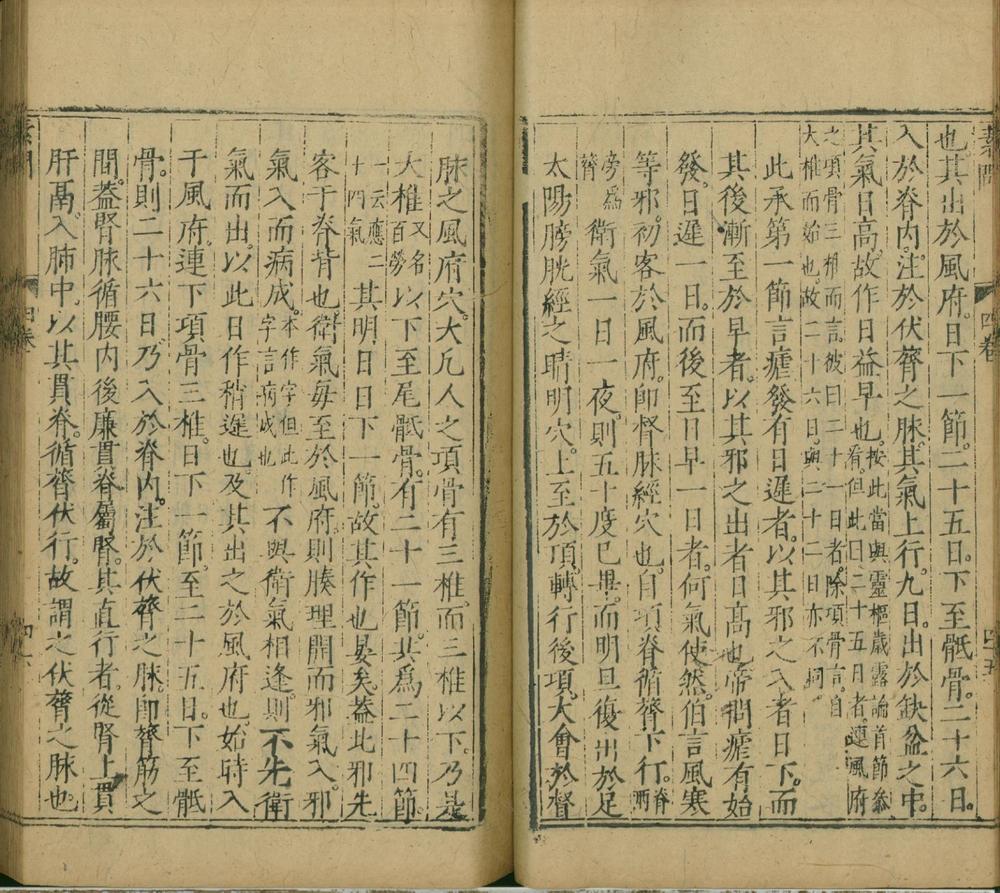 素問
四卷
四十五
也其出於風府日下一節二十五日下至骶骨二十六日
入於脊內注於伏膂之脉其氣上行九日出於缺盆之中
其氣日高故作日益早也按此當與靈樞歲露論首節參看但此曰二十五日者連風府
之項骨三椎而言彼曰二十一日者除項骨言自大椎而始也故二十六日與二十二日亦不同
此承第一節言瘧發有日遲者以其邪之入者日下而
其後漸至於早者以其邪之出者日高也帝問瘧有始
發日遲一日而後至日早一日者何氣使然伯言風寒
等邪初客於風府即督脉經穴也自項脊循膂下行脊兩
旁爲膂衛氣一日一夜則五十度已畢而明旦復出於足
太陽膀胱經之睛明穴上至於頂轉行後項大會於督
脉之風府穴大凡人之項骨有三椎而三椎以下乃是
大椎又名百勞以下至尾骶骨有二十一節共爲二十四節
一云應二十四氣其明日日下一節故其作也晏矣葢此邪先
客于脊背也衛氣每至於風府則腠理開而邪氣入邪
氣入而病成本作字但此作字言病成也不與衛氣相逢則不先衛
氣而出以此日作稍遲也及其出之於風府也始時入
于風府連下項骨三椎日下一節至二十五日下至骶
骨則二十六日乃入於脊內注於伏膂之脉即膂筋之
間葢腎脉循腰內後廉貫脊屬腎其直行者從腎上貫
肝鬲入肺中以其貫脊循膂伏行故謂之伏膂之脉也
素問
四卷